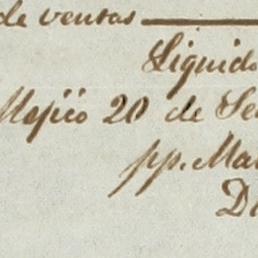 de ventas
Liquido
Mejico 20 de Se
pp. Ma
D